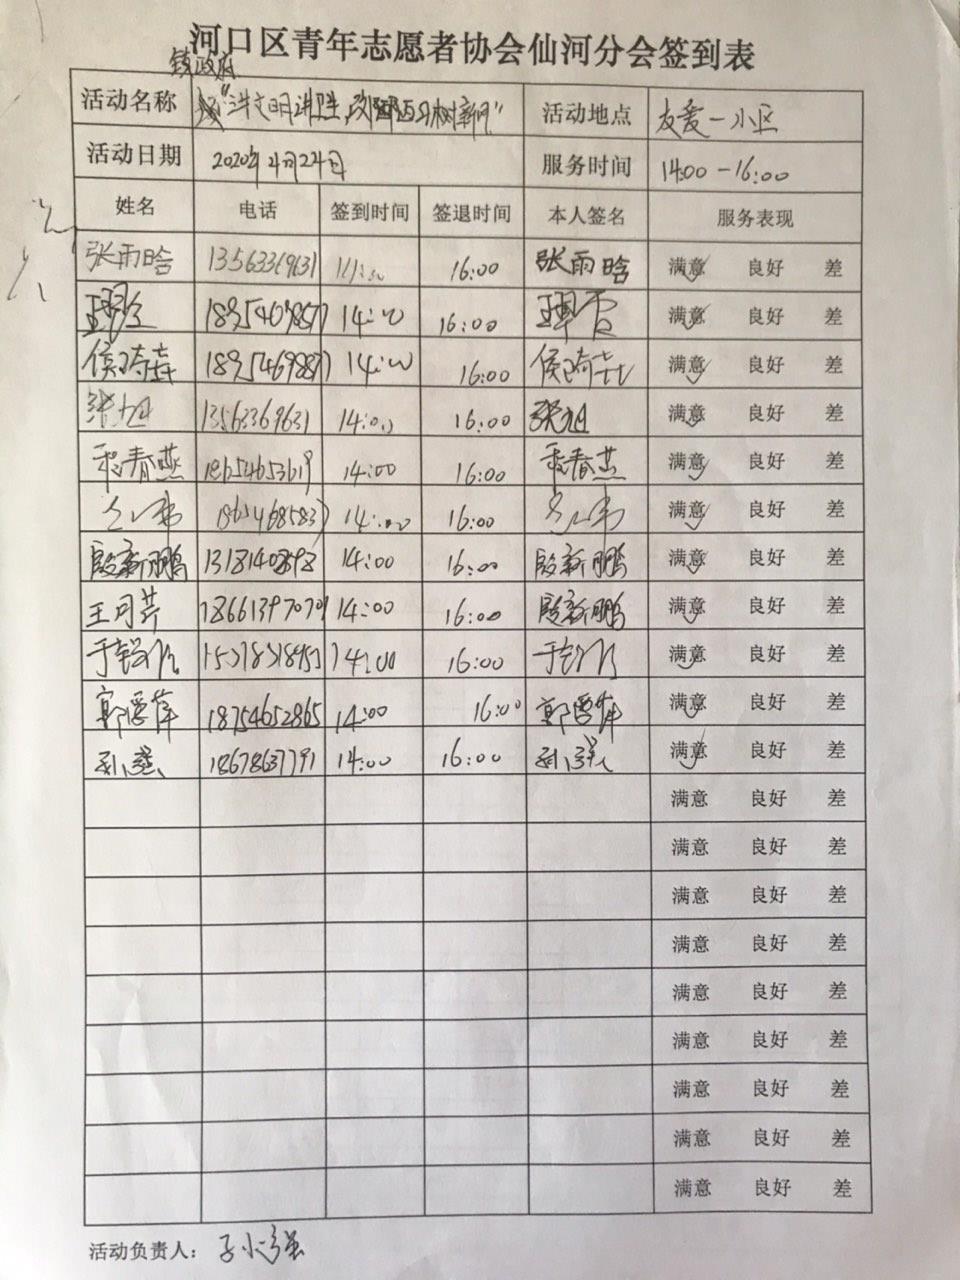 河口区青年志愿者协会仙河分会签到表
镇政府
活动名称 "讲文明讲卫生,改陋习树新风" 活动地点 友爱一小区
活动日期 2020年4月24日 服务时间 14:00-16:00
姓名 电话 签到时间 签退时间 本人签名 服务表现
张雨晗 13563369631 14:00 16:00 张雨晗 满意 良好 差
14:00 16:00 满意 良好 差
侯琦垚 14:00 16:00 侯琦垚 满意 良好 差
张旭 13563369631 14:00 16:00 张旭 满意 良好 差
春燕 18654653619 14:00 16:00 春燕 满意 良好 差
14:00 16:00 满意 良好 差
殷新鹏 14:00 16:00 殷新鹏 满意 良好 差
王可芹 18661397070 14:00 16:00 殷新鹏 满意 良好 差
于 14:00 16:00 于 满意 良好 差
郭雪萍 18754652865 14:00 16:00 郭雪萍 满意 良好 差
孙 18678637791 14:00 16:00 孙 满意 良好 差
满意 良好 差
满意 良好 差
满意 良好 差
满意 良好 差
满意 良好 差
满意 良好 差
满意 良好 差
满意 良好 差
满意 良好 差
活动负责人: 子小强